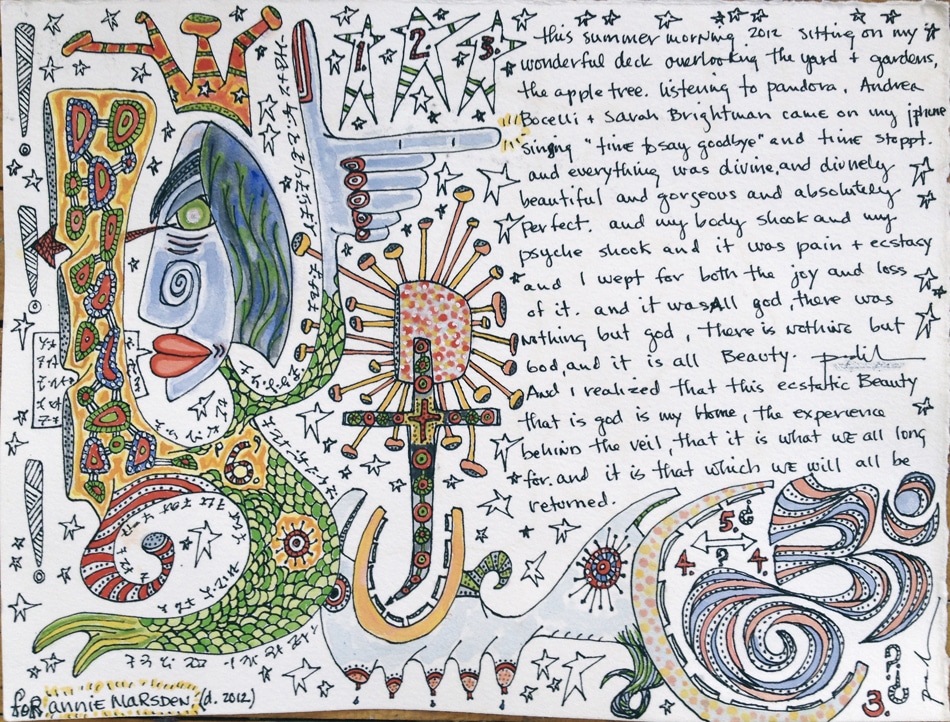 1. 2. 3.
this summer morning 2012 sitting on my
wonderful deck overlooking the yard + gardens,
the apple tree. listening to pandora, Andrea
Bocelli + Sarah Brightman came on my iphone
singing "time to say goodbye" and time stoppt.
and everything was divine, and divinely
beautiful and gorgeous and absolutely
perfect. and my body shook and my
psyche shook and it was pain + ecstasy
and I wept for both the joy and loss
of it. and it was All god, there was
nothing but god, there is nothing but
God, and it is all Beauty.
And I realized that this ecstatic Beauty
that is god is my Home, the experience
behind the veil, that it is what WE all long
for. and it is that which WE will all be
returned.
6.
?
5.
4. ? 4.
3.
FOR ANNIE MARSDEN (d. 2012)